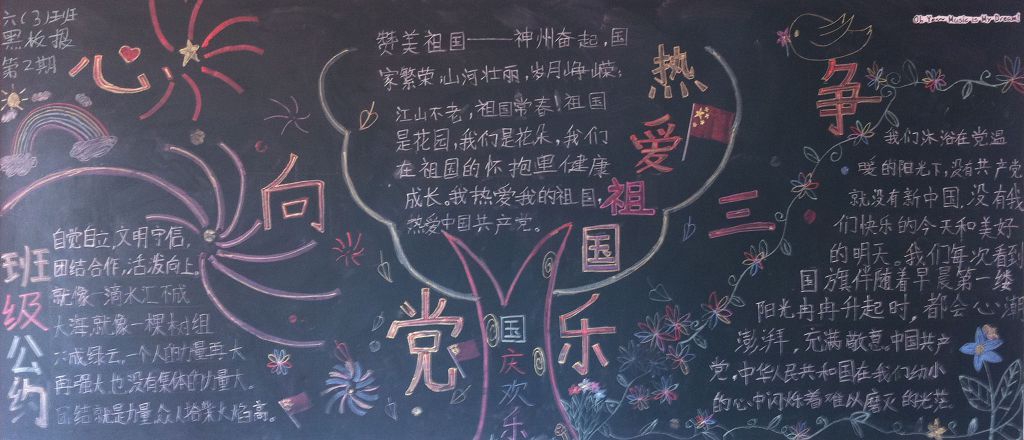 六(3)班
黑板报
第2期
心
向
党
班级公约
自觉自立,文明守信,
团结合作,活泼向上。
就像一滴水汇不成
大海,就像一棵树组
不成绿云。一个人的力量再大
再强大也没有集体的力量大。
团结就是力量,众人拾柴火焰高。
赞美祖国——神州奋起,国
家繁荣;山河壮丽,岁月峥嵘;
江山不老,祖国常春!祖国
是花园,我们是花朵,我们
在祖国的怀抱里健康
成长。我热爱我的祖国,
热爱中国共产党。
热爱祖国
国庆欢乐
乐
争
三
Music is My Dream!
我们沐浴在党温
暖的阳光下,没有共产党
就没有新中国,没有我
们快乐的今天和美好
的明天。我们每次看到
国旗伴随着早晨第一缕
阳光冉冉升起时,都会心潮
澎湃,充满敬意。中国共产
党,中华人民共和国在我们幼小
的心中闪烁着难以磨灭的光芒。